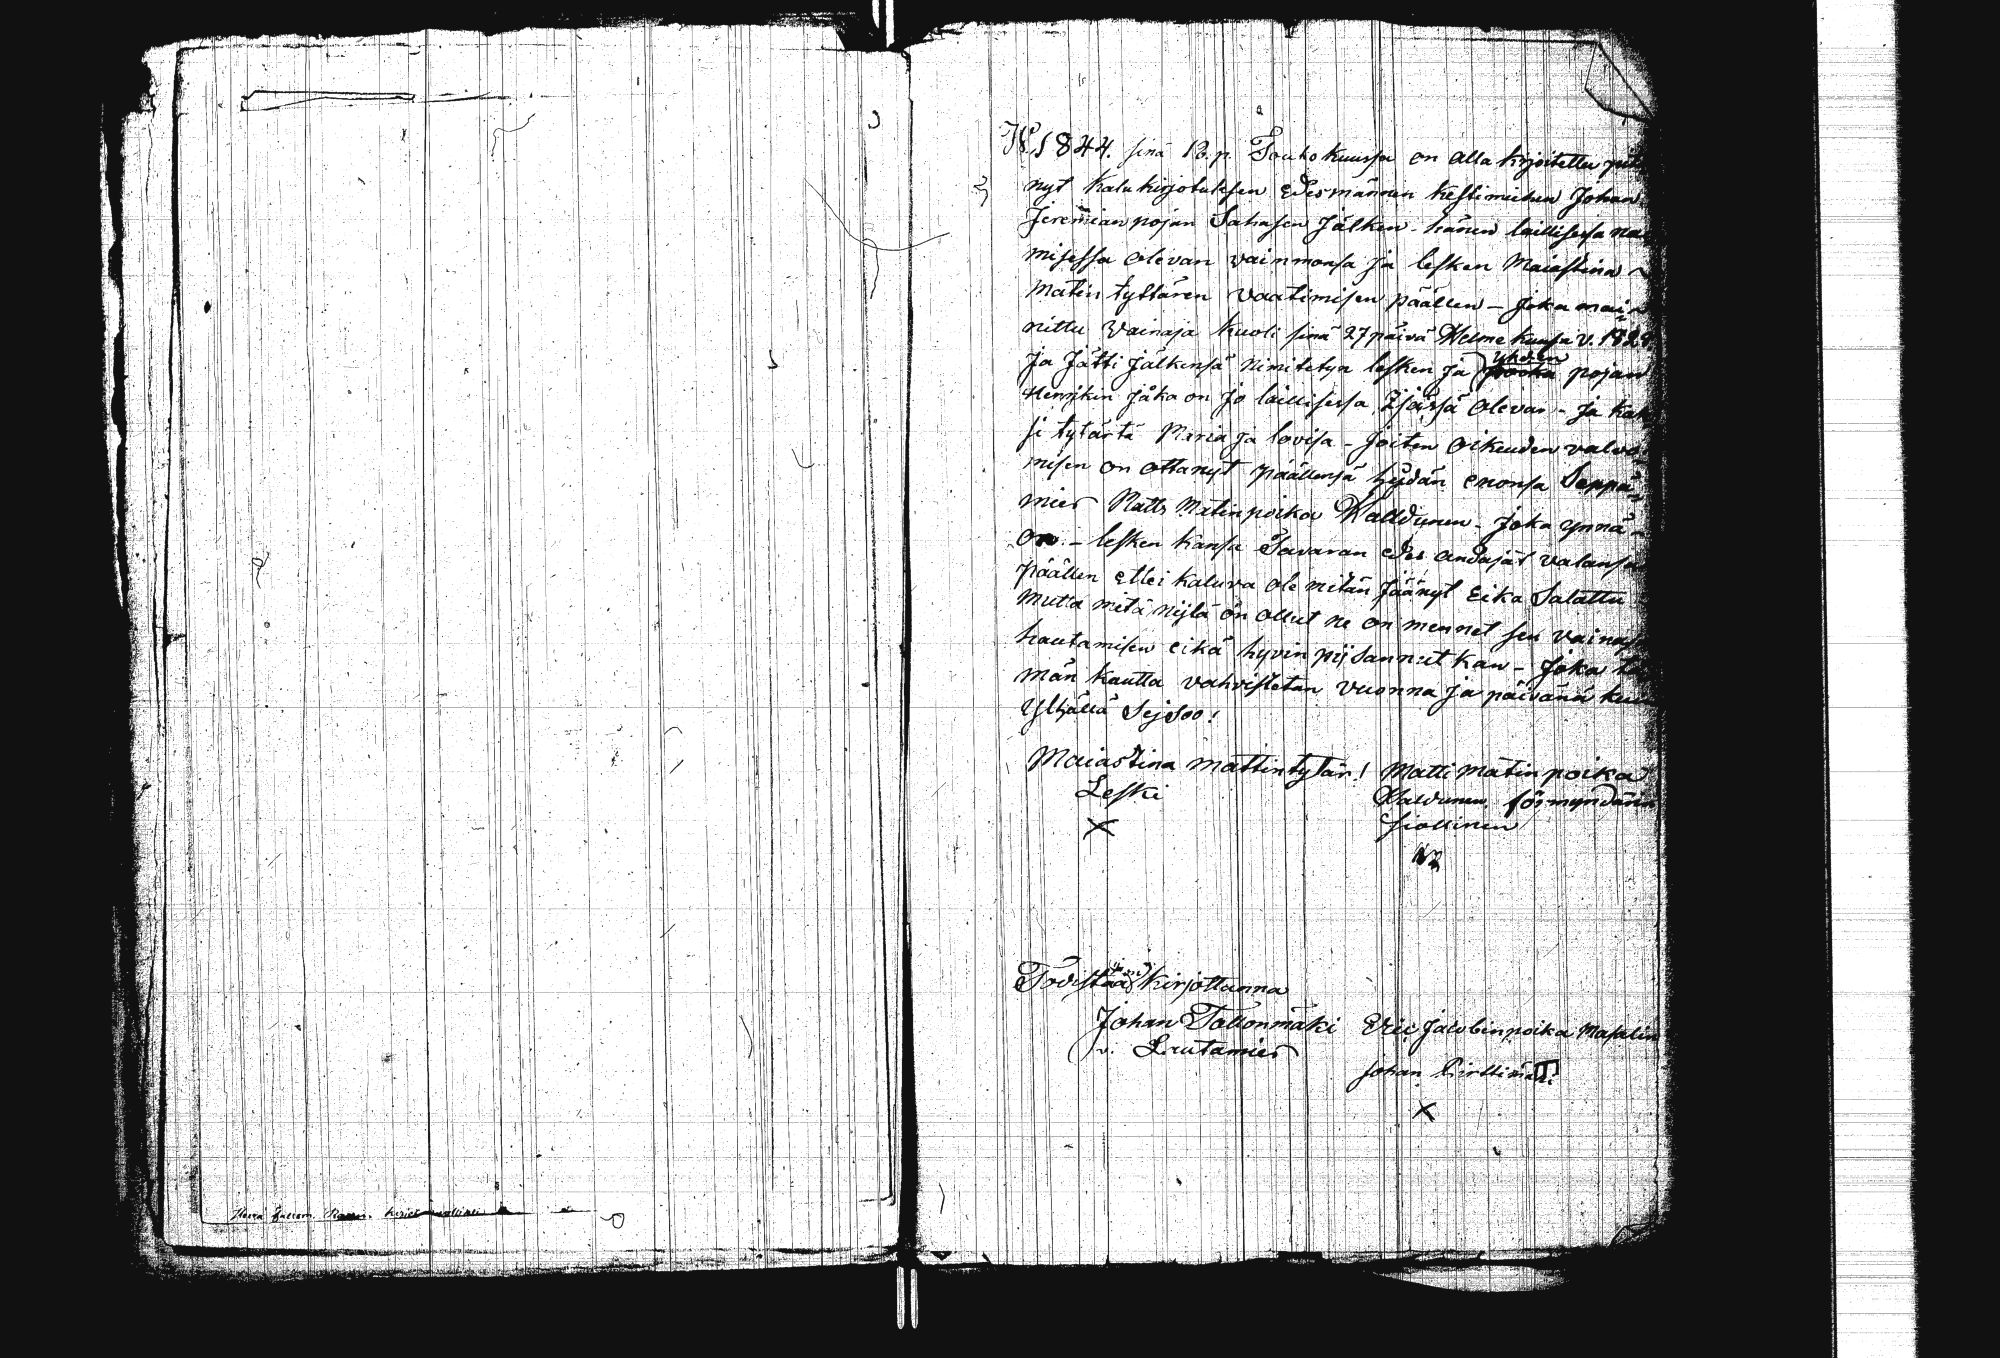 W. 1844. sinä 13. p. Toukokuussa on alla kirjoitettu pitä
nyt kalukirjotuksen edesmännen kestimiehen Johan
Jeremianpojan Sahasen Jälken - hänen laillisessa nai
misessa olevan vaimmonsa ja lesken Maiastina
Matin tyttären vaatimisen päällen - joka mai
nittu vainaja kuoli sinä 27 päivä Helmekuusa v. 1829
ja Jätti jälkensä nimitetyn lesken ja yhden pojan
Henrjkin joka on jo laillisessa Ijässä olevan - ja kak
si tytärtä Maria ja lovisa - joiten oikeuden valvo
misen on ottanyt päällensä heidän enonsa Seppä
mies Matts Matinpoika Walldunen - joka ynnä
on - lesken kansa Tavaran edes andajat valansa
päällen ettei kaluva ole mitän Jäänyt Eikä Salattu
mutta mitä nijtä on ollut ne on mennet sen vainaja
hautamisen eikä hyvin pijsannut kan - joka tä
män kautta vahvistetan vuonna ja päivänä kuin
Ylhällä Sejsoo!
Maiastina mattintytär! Matti Matin poika
Leski Walldunen förmyndärin
X siallinen
Todistaa kirjottanna
Johan Tollonmäki Eric Jacobinpoika Majalin
v. Lautamies
Johan Pirttimäki
X